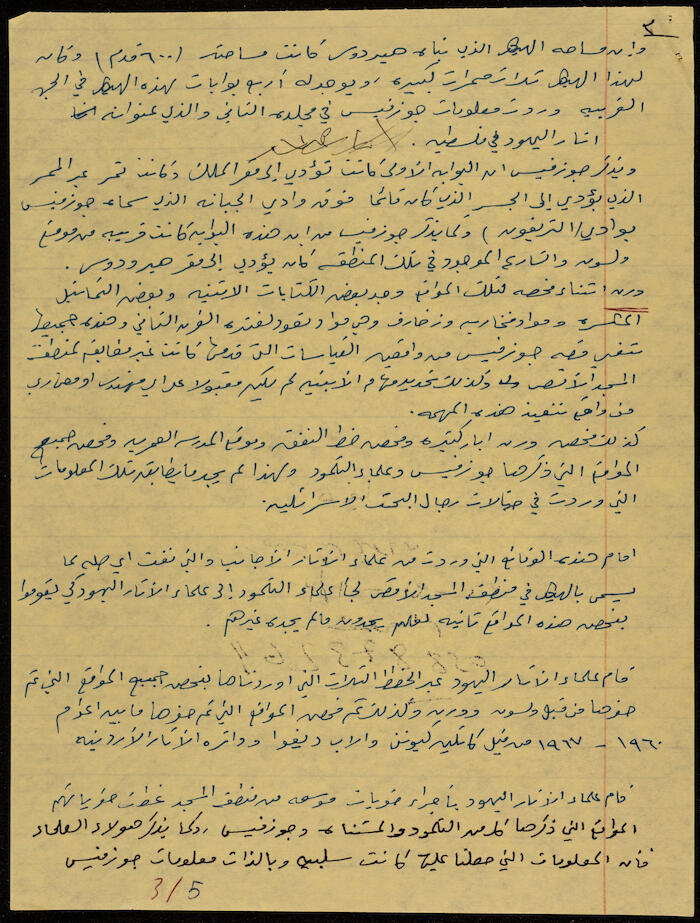 ٣
وان مساحه الهيكل الذي بناه هيردوس كانت مساحته (٦٠٠ قدم) وكان
لهذا الهيكل ثلاث ممرات كبيره، ويوجد له أربع بوابات لهذه الهيكل في الجهه
الغربيه وردت معلومات جوزفيس في مجلده الثاني والذي عنوانه
اثار اليهود في فلسطين.
ويذكر جوزفيس ان البوابه الأولى كانت تؤدي إلى مقر الملك وكانت تمر عبر الممر
الذي يؤدي إلى الجسر الذي كان قائما فوق وادي الجبانه الذي سماه جوزفيس
بوادي (التريفون) ولما يذكر جوزفيس من ان هذه البوابه كانت قريبه من موقع
ولسون والشارع الموجود في تلك المنطقه كان يؤدي إلى مقر هيرودوس.
ورن اثناء فحصه لتلك المواقع وجد بعض الكتابات الاتينيه وبعض التماثيل
المكسره ومواد فخاريه وزخارف وهي مواد تعود لفتره القرن الثاني وهذه جميعها
تنفي قصه جوزفيس من واقعيه القياسات التي قدمها كانت غير مطابقه لمنطقة
المسجد الأقصى وكذلك تحديد مهام الأبنيه لم يكن مقبولا على اي مهندس او معماري
من واقع تنفيذ هذه المهمه.
كذلك فحص ورن ابار كثيره وفحص خط النفق وموقع المدرسه العمريه وفحص جميع
المواقع التي ذكرها جوزفيس وعلماء التلمود ولهذا لم يجد ما يطابق تلك المعلومات
التي وردت في خيالات رجال البحث الاسرائيليه.
امام هذه الوقائع التي وردت من علماء الآثار الأجانب والتي نفت اي صله لما
يسمى بالهيكل في منطقة المسجد الأقصى لجأ علماء التلمود إلى علماء الآثار اليهود كي يقوموا
بفحص هذه المواقع ثانيه لعلهم يجدون ما لم يجده غيرهم.
قام علماء الآثار اليهود عبر الخطط الثلاث التي اوردناها بفحص جميع المواقع التي تم
حفرها من قبل ولسون وورن وكذلك تم فحص المواقع التي تم حفرها ما بين اعوام
١٩٦٠ - ١٩٦٧ من قبل كاثلين كينون والاب ديفوا ودائره الآثار الأردنيه
قام علماء الآثار اليهود بأجراء حفريات موسعه من منطقة المسجد غطت حفرياتهم
المواقع التي ذكرها كل من التلمود والمشناه وجوزفيس، وكما يذكر هولاء العلماء
فأن المعلومات التي حصلنا عليها كانت سلبيه وبالذات معلومات جوزفيس
3/5